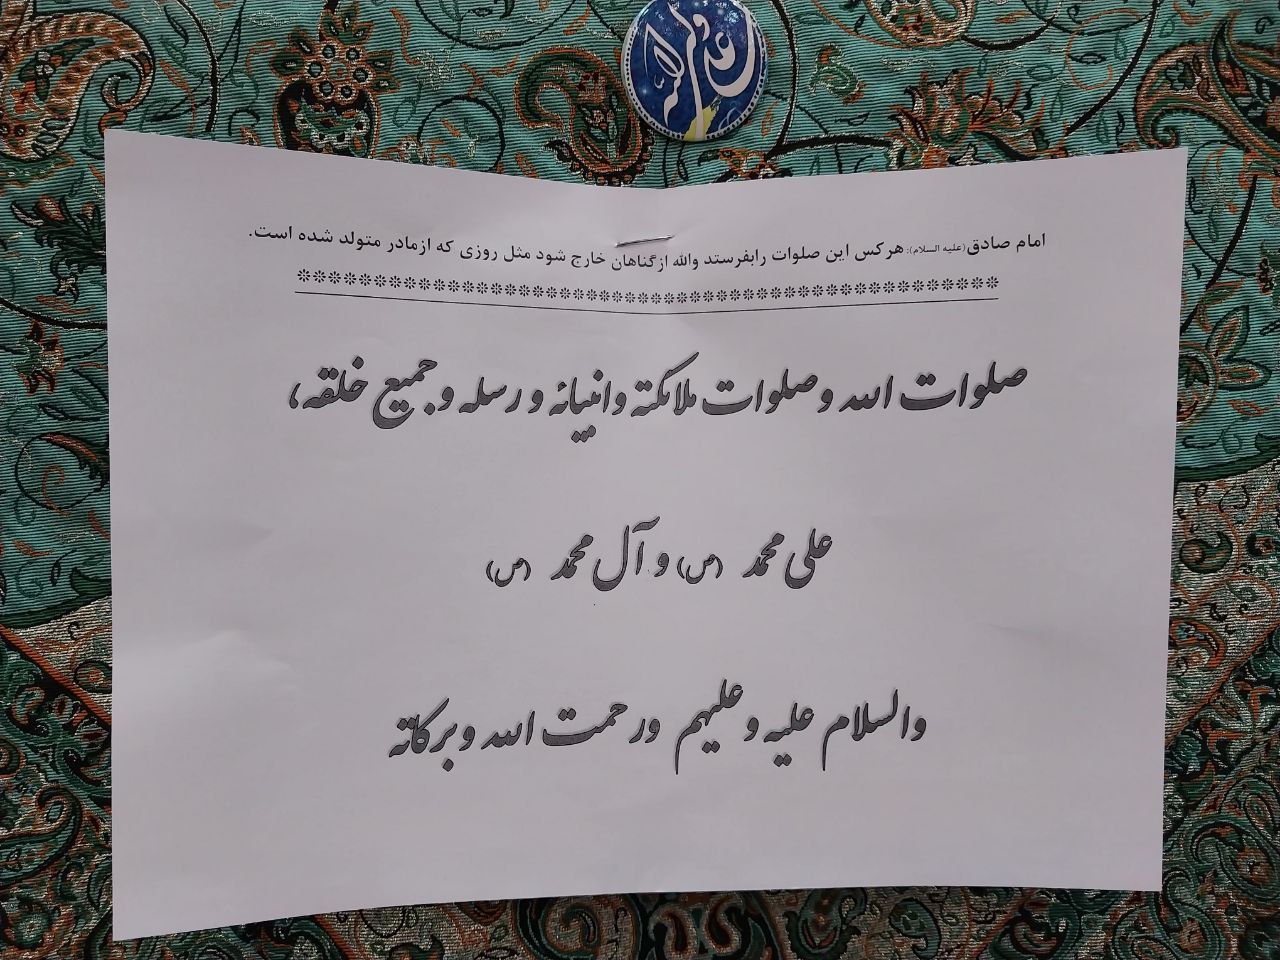 علی ولی الله
امام صادق(علیه السلام): هرکس این صلوات رابفرستد والله ازگناهان خارج شود مثل روزی که ازمادر متولد شده است.
صلوات الله و صلوات ملائکته و انبیائه و رسله و جمیع خلقه،
علی محمد (ص) و آل محمد (ص)
والسلام علیه و علیهم ورحمت الله وبرکاته